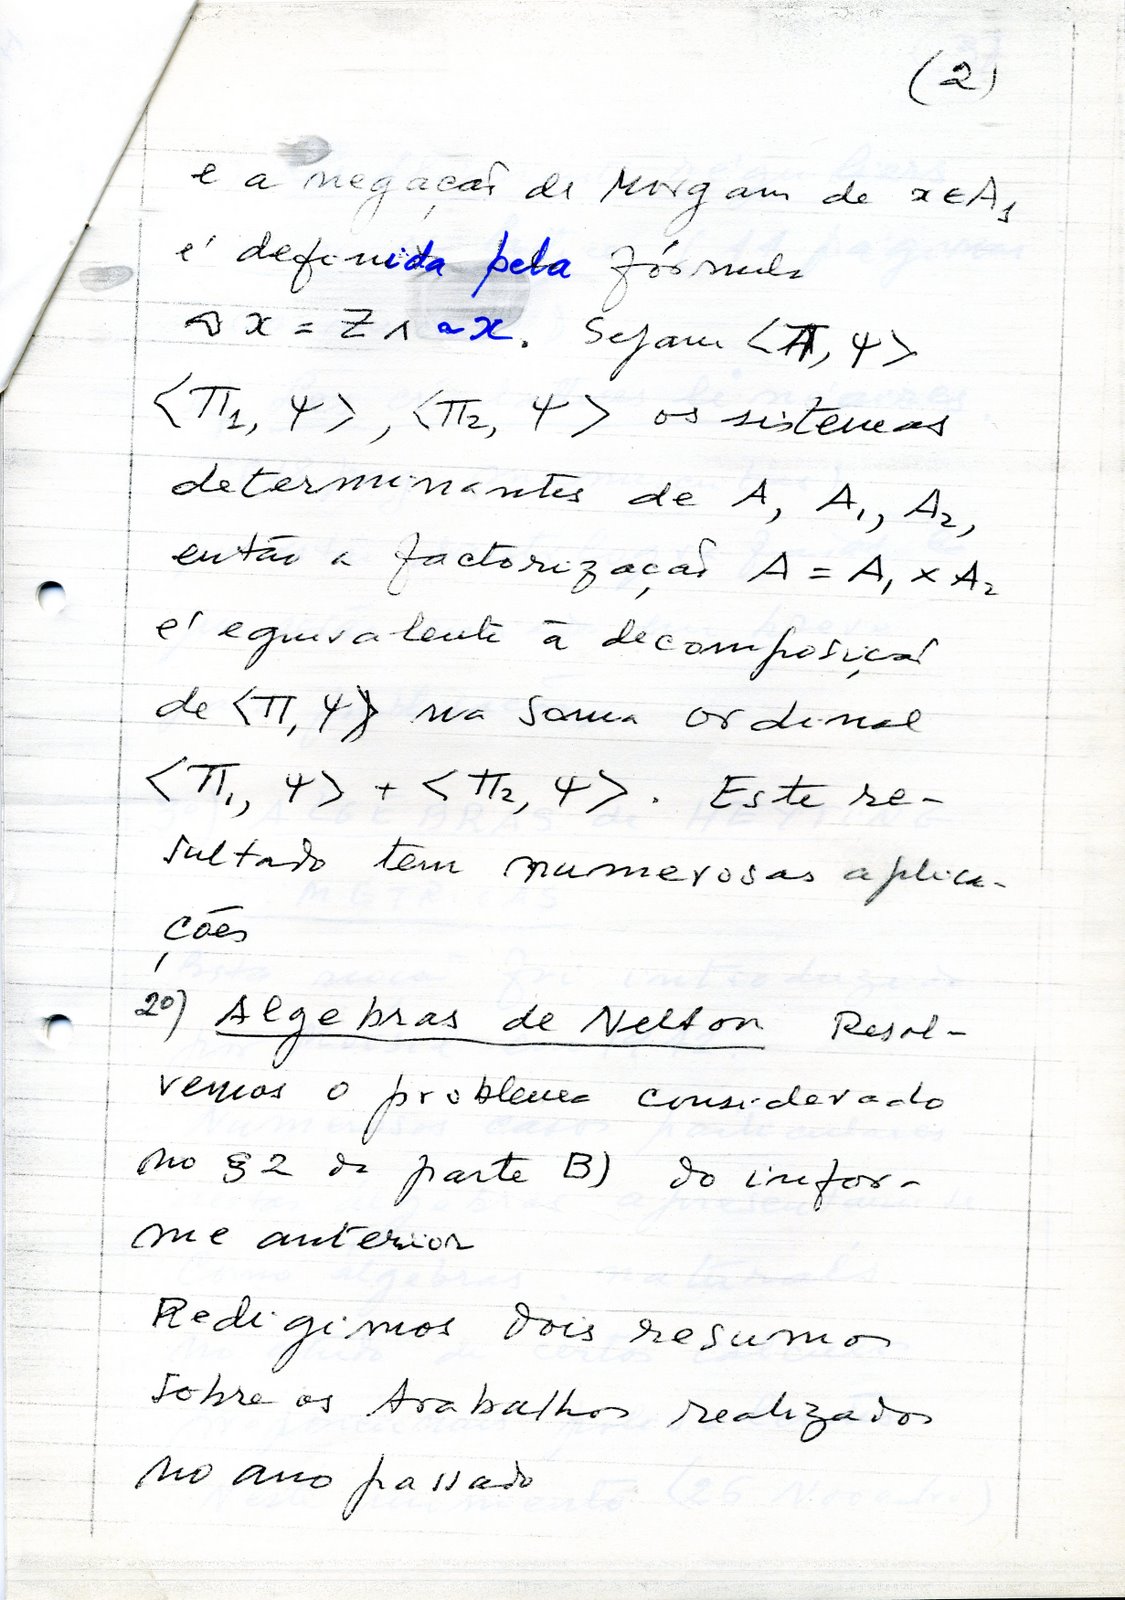 (2)
e a negação de Morgam de x ∈ A₁
é definida pela fórmula
~ x = Z ∧ ~x. Sejam <Π, Ψ>
<Π₁, Ψ>, <Π₂, Ψ> os sistemas
determinantes de A, A₁, A₂,
então a factorização A = A₁ × A₂
é equivalente à decomposição
de <Π, Ψ> na soma ordinal
<Π₁, Ψ> + <Π₂, Ψ>. Este re-
sultado tem numerosas aplica-
ções
2º) Algebras de Nelson Resol-
vemos o problema considerado
no § 2 da parte B) do infor-
me anterior
Redigimos dois resumos
sobre os trabalhos realizados
no ano passado